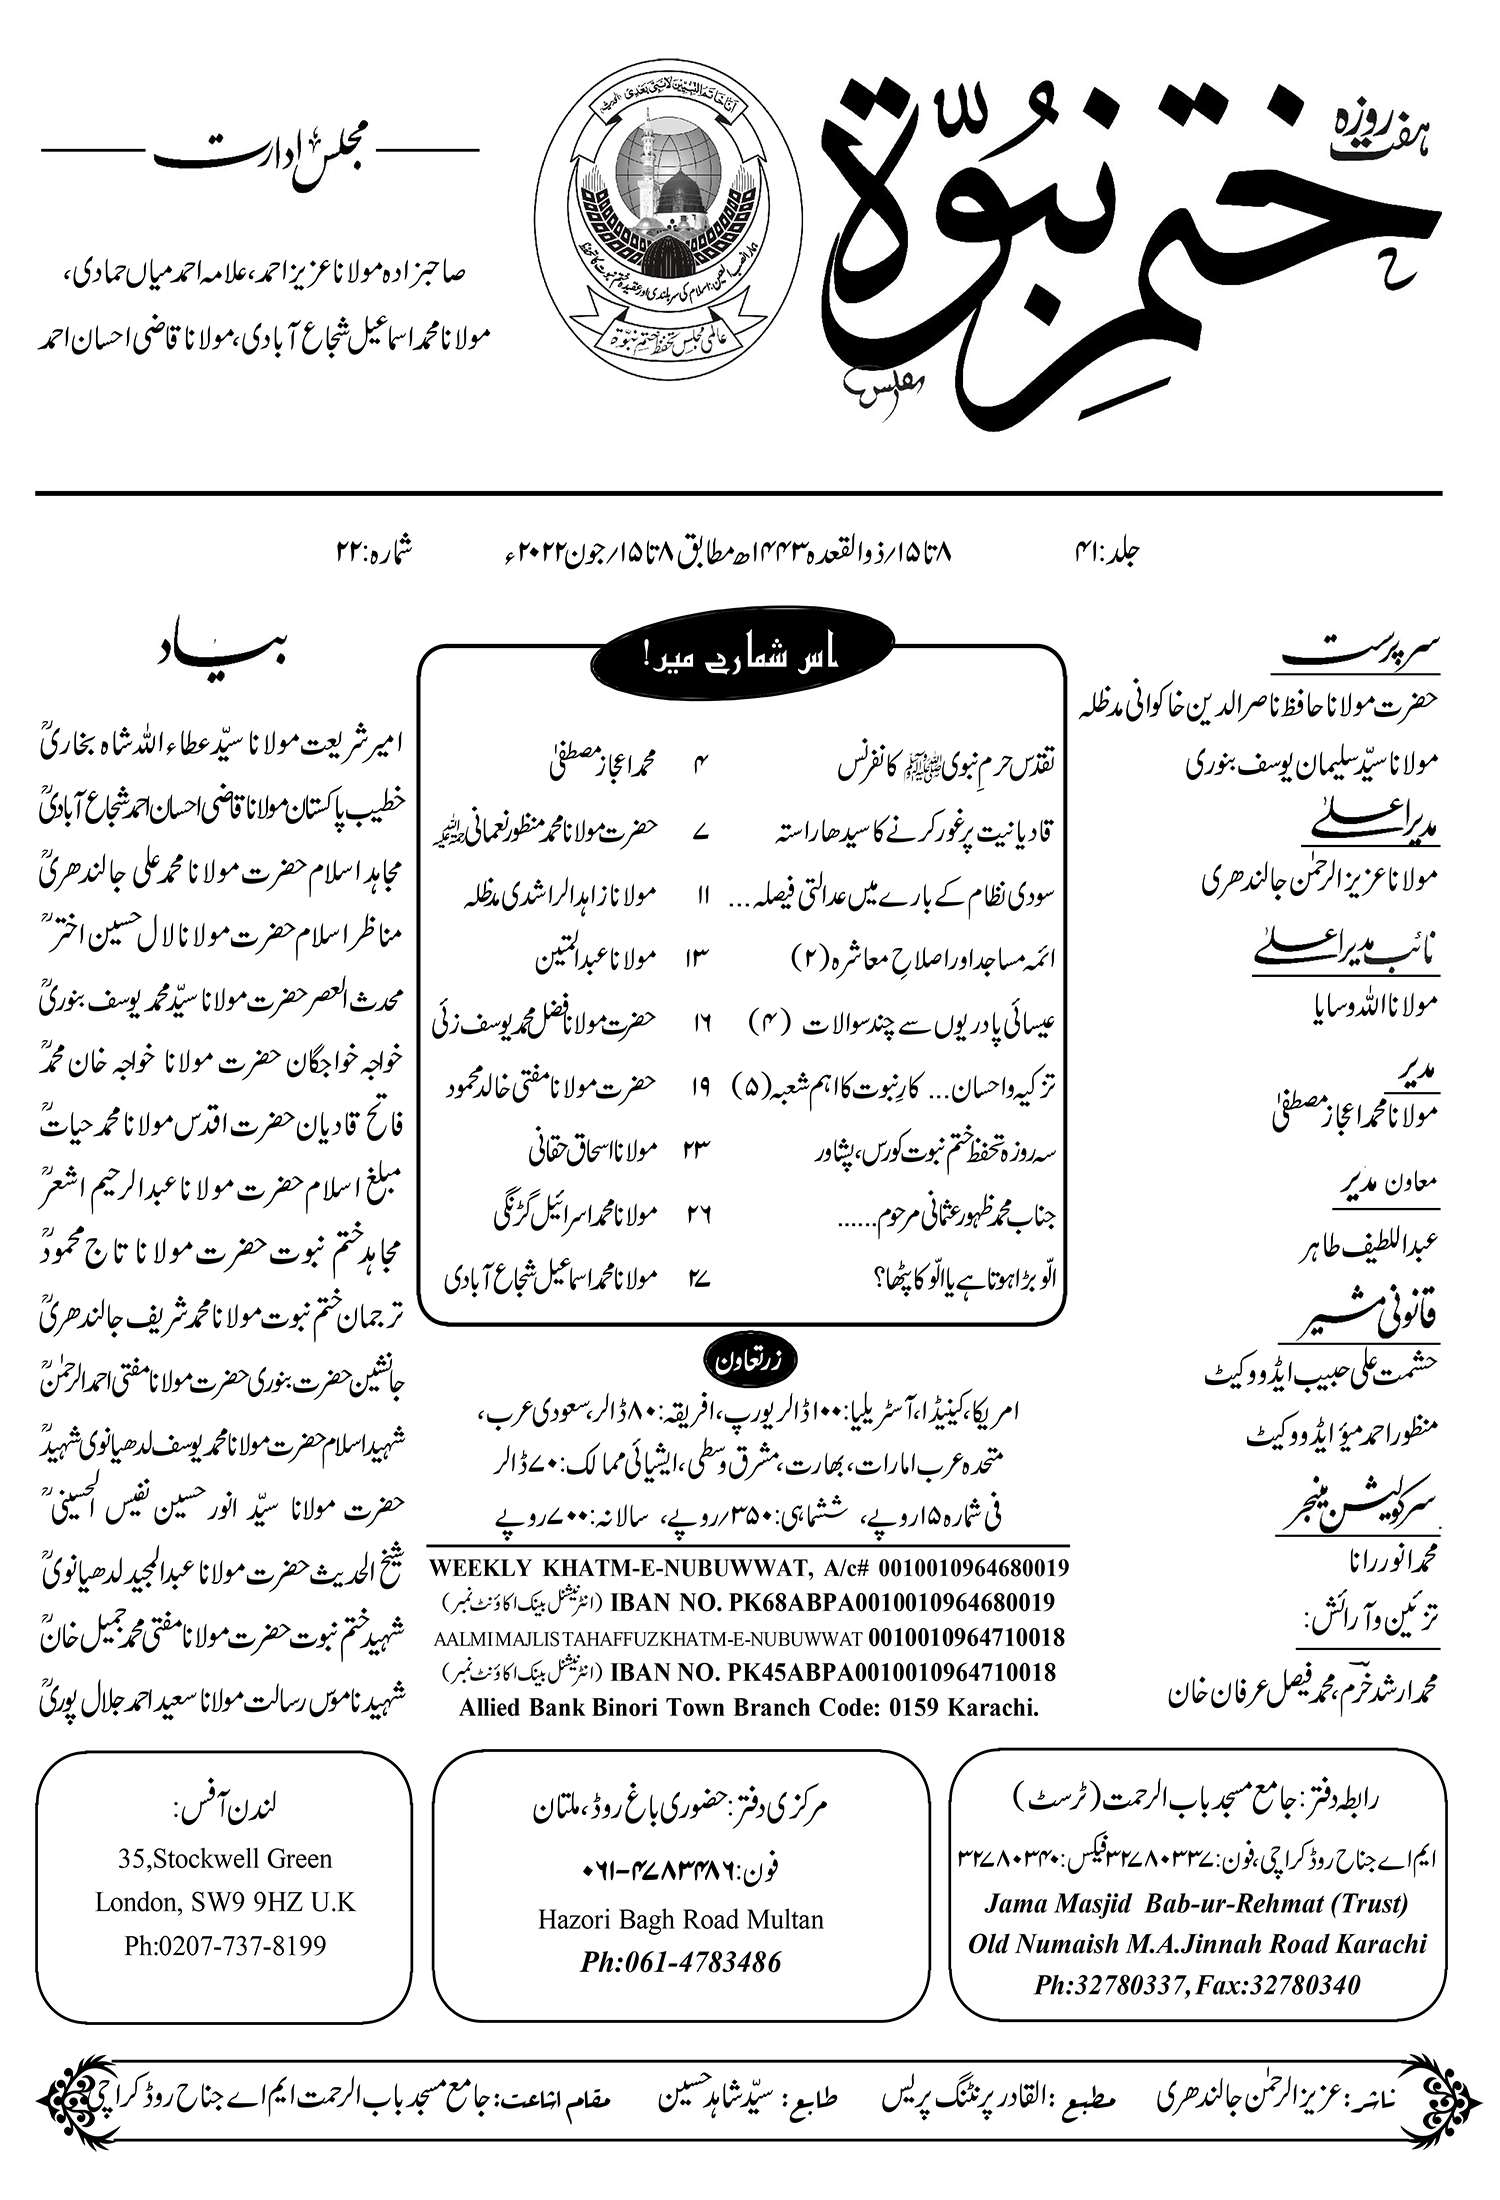 ہفت روزہ
ختمِ نبوّۃ
اَنَا خَاتَمُ النَّبِیّٖنَ لَا نَبِیَّ بَعْدِیْ
عالمی مجلس تحفظ ختم نبوّۃ
مجلس ادارت
صاحبزادہ مولانا عزیز احمد، علامہ احمد میاں حمادی،
مولانا محمد اسماعیل شجاع آبادی، مولانا قاضی احسان احمد
جلد: ۴۱
۸ تا ۱۵/ ذوالقعدہ ۱۴۴۳ھ مطابق ۸ تا ۱۵/ جون ۲۰۲۲ء
شمارہ: ۲۲
سرپرست
حضرت مولانا حافظ ناصر الدین خاکوانی مدظلہ
مولانا سیّد سلیمان یوسف بنوری
مدیر اعلیٰ
مولانا عزیز الرحمٰن جالندھری
نائب مدیر اعلیٰ
مولانا اللہ وسایا
مدیر
مولانا محمد اعجاز مصطفیٰ
معاون مدیر
عبداللطیف طاہر
قانونی مشیر
حشمت علی حبیب ایڈووکیٹ
منظور احمد میؤ ایڈووکیٹ
سرکولیشن مینجر
محمد انور رانا
تزئین و آرائش:
محمد ارشد خرم، محمد فیصل عرفان خان
اس شمارے میں!
تقدّس حرمِ نبوی ﷺ کانفرنس ۴ محمد اعجاز مصطفیٰ
قادیانیت پر غور کرنے کا سیدھا راستہ ۷ حضرت مولانا محمد منظور نعمانی رحمہ اللہ علیہ
سودی نظام کے بارے میں عدالتی فیصلہ... ۱۱ مولانا زاہد الراشدی مدظلہ
ائمہ مساجد اور اصلاحِ معاشرہ (۲) ۱۳ مولانا عبدالمتین
عیسائی پادریوں سے چند سوالات (۴) ۱۶ حضرت مولانا فضل محمد یوسف زئی
تزکیہ و احسان... کارِ نبوت کا اہم شعبہ (۵) ۱۹ حضرت مولانا مفتی خالد محمود
سہ روزہ تحفظ ختم نبوت کورس، پشاور ۲۳ مولانا اسحاق حقانی
جناب محمد ظہور عثمانی مرحوم...... ۲۶ مولانا محمد اسرائیل گڑنگی
الّو بڑا ہوتا ہے یا الّو کا پٹھا؟ ۲۷ مولانا محمد اسماعیل شجاع آبادی
زر تعاون
امریکا، کینیڈا، آسٹریلیا: ۱۰۰ ڈالر یورپ، افریقہ: ۸۰ ڈالر، سعودی عرب،
متحدہ عرب امارات، بھارت، مشرق وسطی، ایشیائی ممالک: ۷۰ ڈالر
فی شمارہ ۱۵ روپے، ششماہی: ۳۵۰/ روپے، سالانہ: ۷۰۰ روپے
WEEKLY KHATM-E-NUBUWWAT, A/c# 0010010964680019
IBAN NO. PK68ABPA0010010964680019 (انٹرنیشنل بینک اکاؤنٹ نمبر)
AALMI MAJLIS TAHAFFUZ KHATM-E-NUBUWWAT 0010010964710018
IBAN NO. PK45ABPA0010010964710018 (انٹرنیشنل بینک اکاؤنٹ نمبر)
Allied Bank Binori Town Branch Code: 0159 Karachi.
بیاد
امیر شریعت مولانا سیّد عطاء اللہ شاہ بخاریؒ
خطیب پاکستان مولانا قاضی احسان احمد شجاع آبادیؒ
مجاہد اسلام حضرت مولانا محمد علی جالندھریؒ
مناظر اسلام حضرت مولانا لال حسین اخترؒ
محدث العصر حضرت مولانا سیّد محمد یوسف بنوریؒ
خواجہ خواجگان حضرت مولانا خواجہ خان محمدؒ
فاتح قادیان حضرت اقدس مولانا محمد حیاتؒ
مبلغ اسلام حضرت مولانا عبدالرحیم اشعرؒ
مجاہد ختم نبوت حضرت مولانا تاج محمودؒ
ترجمان ختم نبوت مولانا محمد شریف جالندھریؒ
جانشین حضرت بنوری حضرت مولانا مفتی احمد الرحمٰنؒ
شہید اسلام حضرت مولانا محمد یوسف لدھیانوی شہیدؒ
حضرت مولانا سیّد انور حسین نفیس الحسینیؒ
شیخ الحدیث حضرت مولانا عبدالمجید لدھیانویؒ
شہید ختم نبوت حضرت مولانا مفتی محمد جمیل خانؒ
شہید ناموس رسالت مولانا سعید احمد جلال پوریؒ
رابطہ دفتر: جامع مسجد باب الرحمت (ٹرسٹ)
ایم اے جناح روڈ کراچی، فون: ۳۲۷۸۰۳۳۷ فیکس: ۳۲۷۸۰۳۴۰
Jama Masjid Bab-ur-Rehmat (Trust)
Old Numaish M.A.Jinnah Road Karachi
Ph:32780337, Fax:32780340
مرکزی دفتر: حضوری باغ روڈ، ملتان
فون: ۰۶۱-۴۷۸۳۴۸۶
Hazori Bagh Road Multan
Ph:061-4783486
لندن آفس:
35,Stockwell Green
London, SW9 9HZ U.K
Ph:0207-737-8199
ناشر: عزیز الرحمٰن جالندھری مطبع: القادر پرنٹنگ پریس طابع: سیّد شاہد حسین مقام اشاعت: جامع مسجد باب الرحمت ایم اے جناح روڈ کراچی